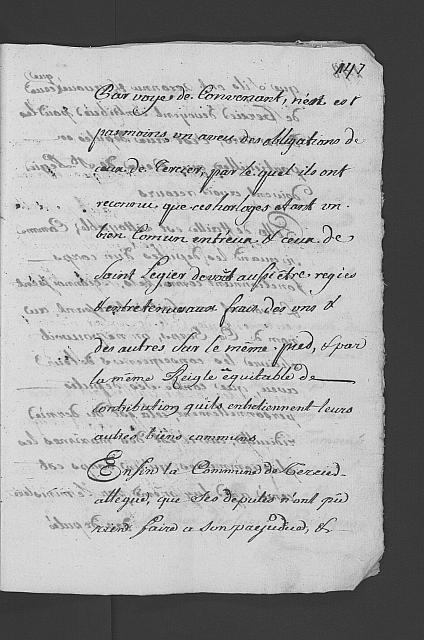 147
Par voye de Convenant, n'en est
pas moins un aveu des obligations de
ceux de Tercier, par le quel ils ont
reconnu que ces horloges etant un
bien Comun entreux & ceux de
Saint Legier devoit aussi être regies
& entretenues aux frais des uns &
des autres sur le même pied, & par
la même Reigle equitable de
contribution quils entretiennent leurs
autres biens communs
Enfin la Commune de
allegue, que ses deputés n'ont pû
rien faire a son prejudice, &